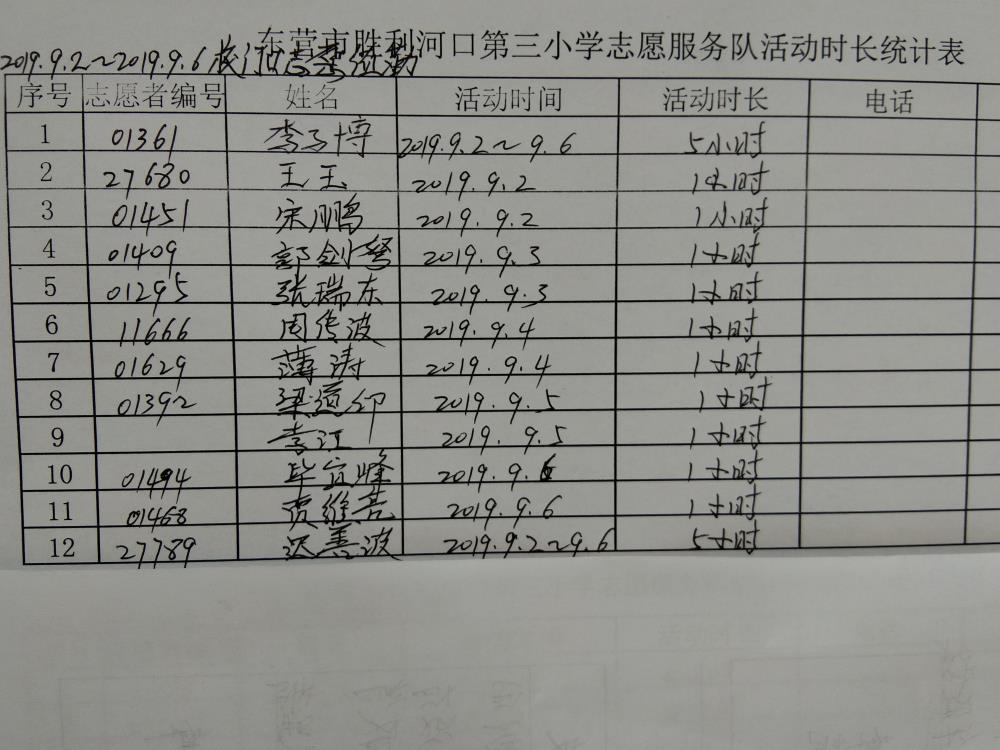 东营市胜利河口第三小学志愿服务队活动时长统计表
2019.9.2～2019.9.6 校门口志愿
序号 志愿者编号 姓名 活动时间 活动时长 电话
1 01361 李子博 2019.9.2～9.6 5小时
2 27680 王玉 2019.9.2 1小时
3 01451 宋鹏 2019.9.2 1小时
4 01409 郭剑 2019.9.3 1小时
5 01295 张瑞东 2019.9.3 1小时
6 11666 周传波 2019.9.4 1小时
7 01629 薄涛 2019.9.4 1小时
8 01392 梁道 2019.9.5 1小时
9 李江 2019.9.5 1小时
10 01494 毕宜峰 2019.9.6 1小时
11 01468 贾维亮 2019.9.6 1小时
12 27789 迟善波 2019.9.2～9.6 5小时